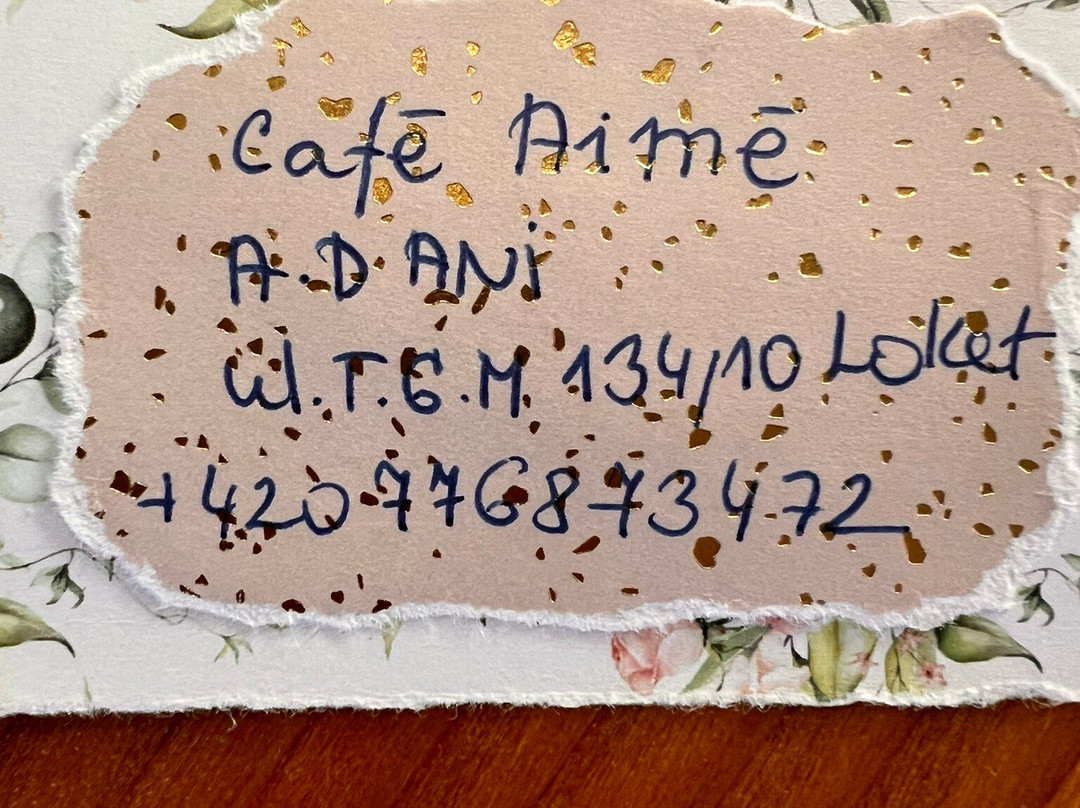 Cafē Aimē
A.D ANi
Ul.T.G.M 134/10 Loket
+420776873472